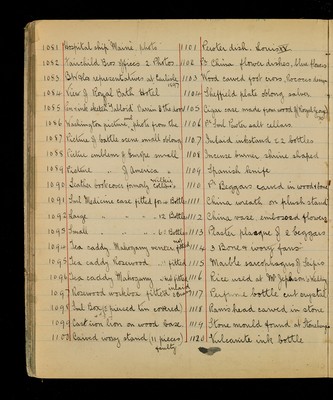 1081 Hospital ship 'Maine' photo
1082 Fairchild Bros offices 2 Photos
1083 B W & Co representatives at Carlisle
1084 View of Royal Bath Hotel
1085 Pen & ink sketch Tabloid
1086 Washington picture, photo from the
1087 Picture of battle scene small oblong
1088 Picture emblems of Europe small
1089 Picture of America
1090 Leather bookcover
1091 Small Medicine case fitted for Bottles
1092 Large 12 Bottles
1093 Small 6 Bottles
1094 Tea caddy Mahogany veneer fitted
1095 Tea caddy Rosewood fitted
1096 Tea caddy Mahogany not fitted
1097 Rosewood workbox fitted
1098 Small Box (pierced tin covered)
1099 Cast iron lion on wood base
1100 Carved ivory stand (11 pieces)
faulty
1101 Pewter dish. Louis XV
1102 Pr China flower dishes, blue flowers
1103 Wood carved foot
1104 Sheffield plate oblong salver
1105 Cigar case made from wood of Royal George
1106 Pr Small Pewter salt cellars
1107 Inlaid inkstand & 2 bottles
1108 Incense burner shrine shaped
1109 Spanish knife
1110 Pr Beggars carved in wood & bone
1111 China wreath on plush stand
1112 China vase embossed flowers
1113 Plaster plaque of 2 beggars
1114 3 Bone & ivory fans
1115 Marble sarcophagus of Scipio
1116 Rice used at
1117 Perfume bottle cut crystal
1118 Ram's head carved in stone
1119 Stone mould found at Stonehenge
1120 Vulcanite ink bottle